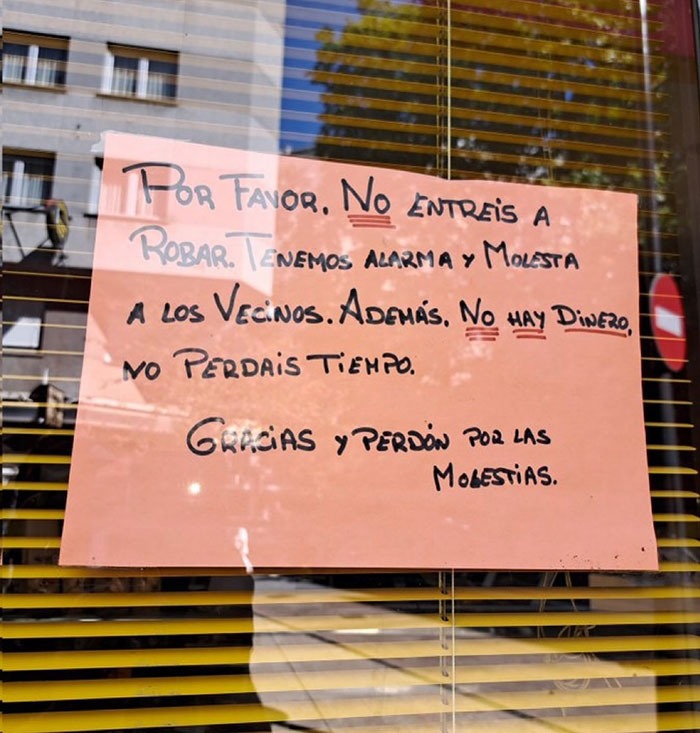 POR FAVOR. NO ENTREIS A
ROBAR. TENEMOS ALARMA Y MOLESTA
A LOS VECINOS. ADEMÁS, NO HAY DINERO,
NO PERDAIS TIEMPO.
GRACIAS Y PERDÓN POR LAS
MOLESTIAS.